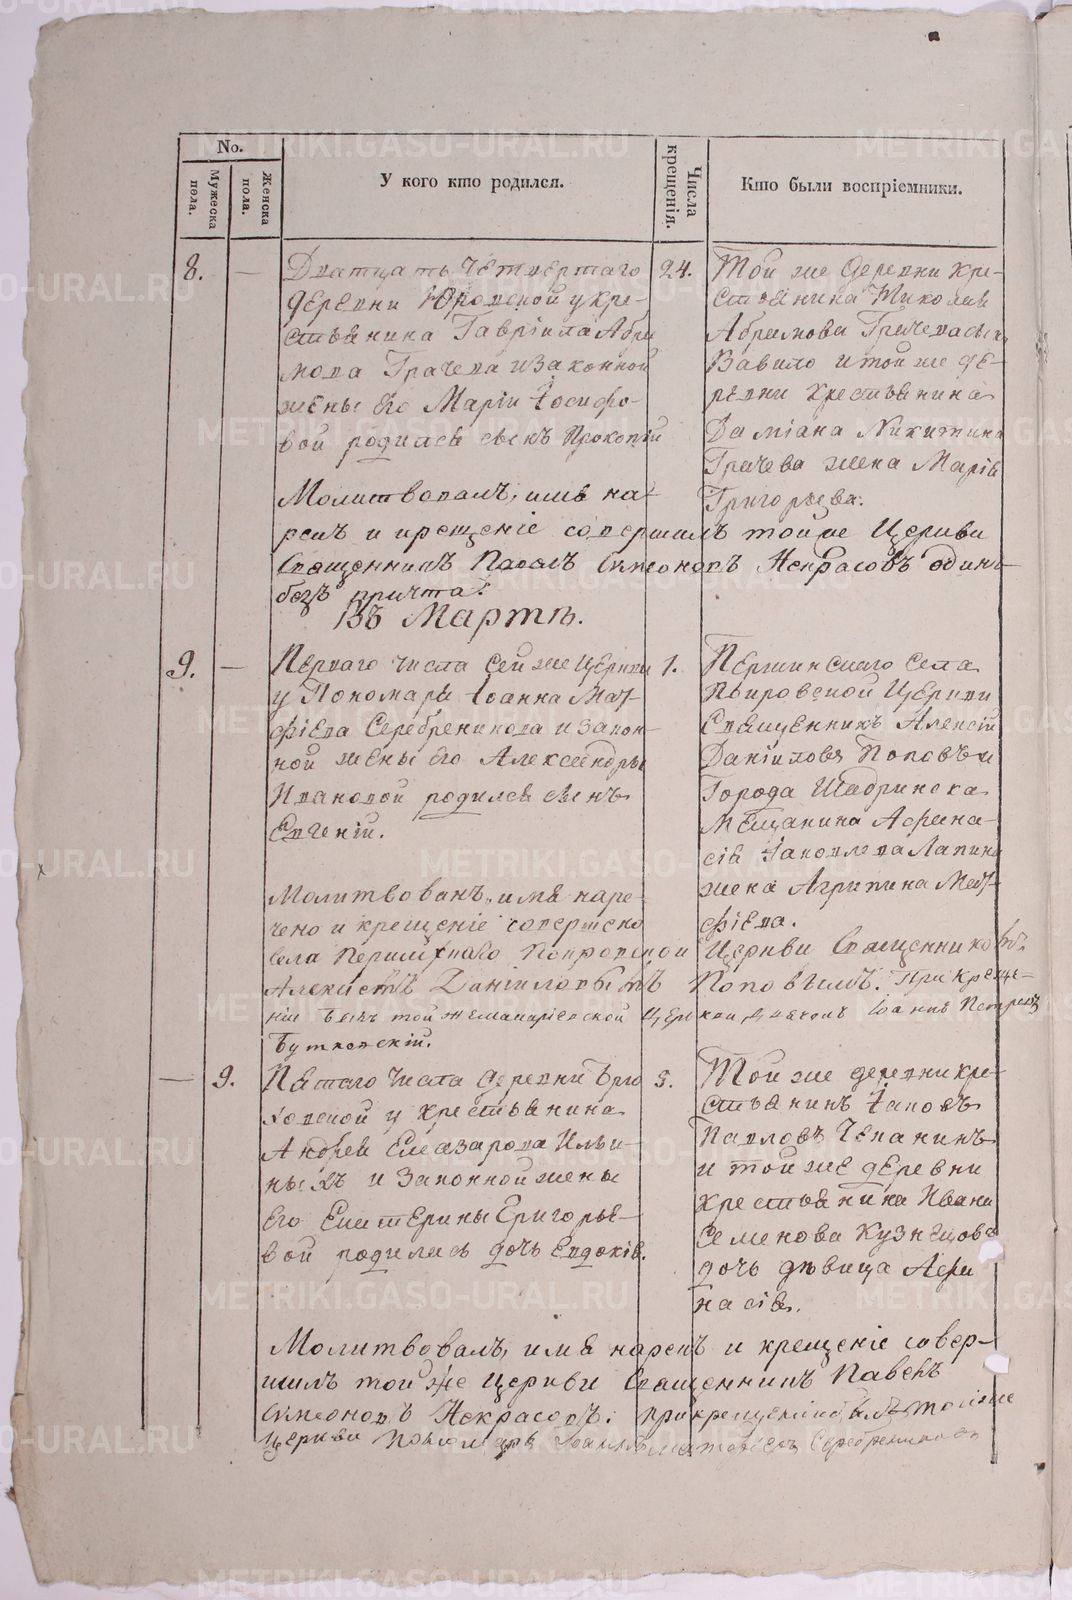 No.
Мужеска пола.
Женска пола.
У кого кто родился.
Числа крещенія.
Кто были воспріемники.
8. —
Дватцать четвертаго
деревни Юровской у кре-
стьянина Гавріила Абра
мова Грачева и законной
жены его Маріи Іосифо-
вой родился сынъ Прокопій
24.
Той же деревни кре-
стьянина Николая
Абрамова Грачева сын
Вавило и той же де-
ревни крестьянина
Даміана Никитина
Грачева жена Марія
Григорьева.
Молитвовалъ, имя на-
рекъ и крещеніе совершилъ тойже Церкви
Священникъ Павелъ Симеоновъ Некрасовъ одинъ
безъ причта.
Въ Мартѣ.
9. —
Перваго числа сей же церкви
у Пономаря Іоанна Мат-
фіева Серебреникова и закон-
ной жены его Александры
Ивановой родился сынъ
Евгеній.
1.
Першинскаго села
Покровской Церкви
Священникъ Алексій
Даніиловъ Поповъ и
Города Шадринска
Мещанина Афана-
сія Іаковлева Лапина
жена Агрипина Мат-
фіева.
Молитвованъ, имя наре-
чено и крещеніе совершено
села Першинскаго Покровской Церкви Священникомъ
Алексіемъ Даніиловымъ Поповымъ. При креще-
ніи былъ той же церкви Діаконъ Іоаннъ Петровъ
— 9.
Пятаго числа деревни
у крестьянина
Андрея Елеазарова Ильи-
ныхъ и законной жены
его Екатерины Григорье-
вой родилась дочь Евдокія.
5.
Той же деревни кре-
стьянинъ Іаковъ
Павловъ Чепанинъ
и той же деревни
крестьянина Ивана
Семенова Кузнецова
дочь дѣвица Афа
насія.
Молитвовалъ, имя нарекъ и крещеніе совер-
шилъ той же Церкви Священникъ Павелъ
Симеоновъ Некрасовъ. При крещеніи былъ тойже
Церкви Пономарь Іоаннъ Матфіевъ Серебрениковъ
METRIKI.GASO-URAL.RU